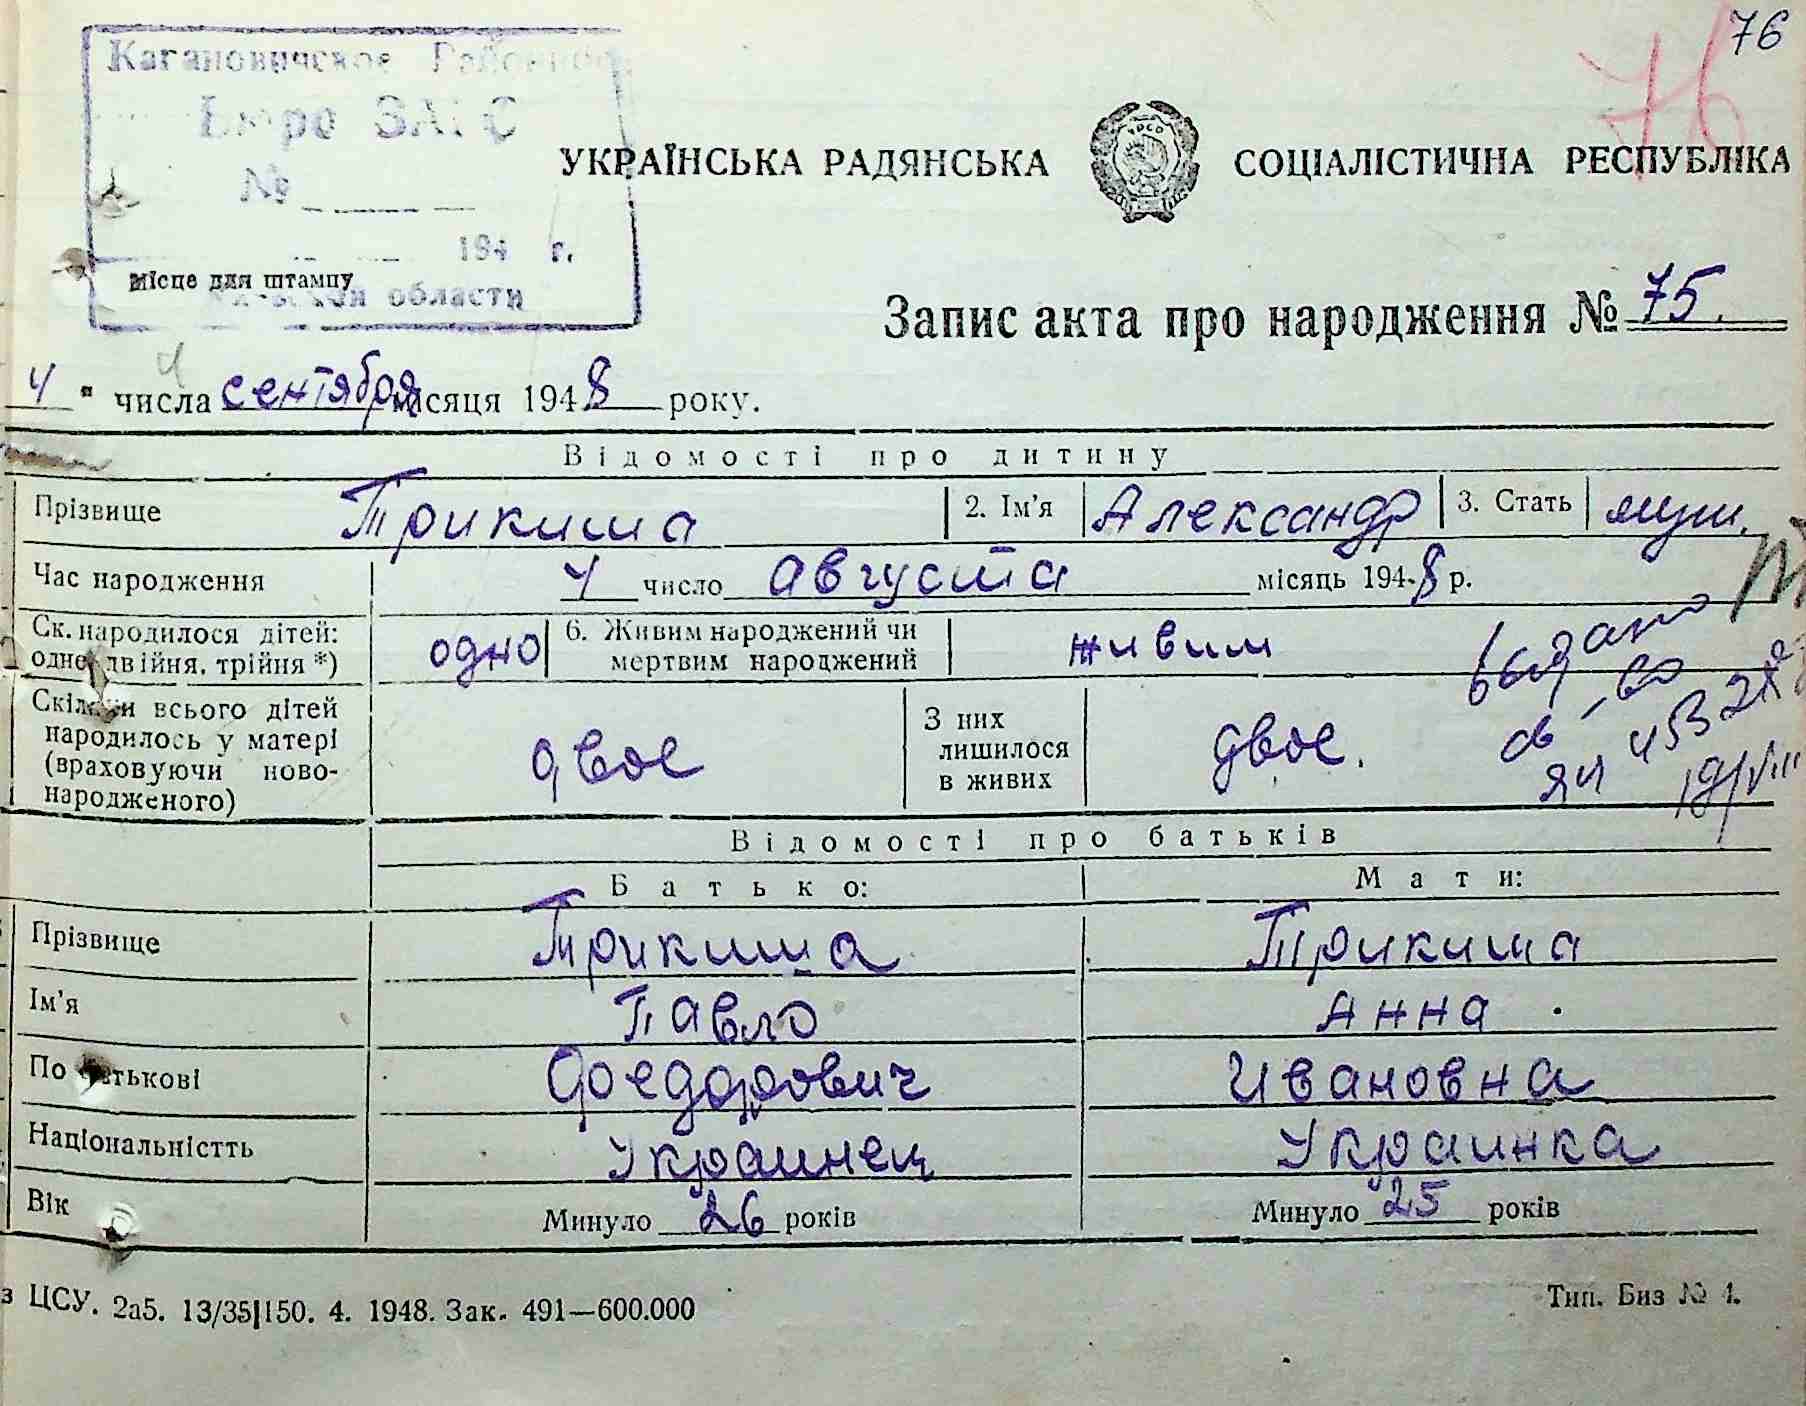 76
76
Кагановичское
Бюро ЗАГС
№
194 г.
Місце для штампу
области
УКРАЇНСЬКА РАДЯНСЬКА СОЦІАЛІСТИЧНА РЕСПУБЛІКА
УРСР
Запис акта про народження № 75.
4
4 " числа сентября місяця 1948 року.
Відомості про дитину
Прізвище Трикиша 2. Ім'я Александр 3. Стать муж.
Час народження 4 число августа місяць 1948 р.
Ск. народилося дітей: одно 6. Живим народжений чи живим
одне двійня, трійня *) мертвим народжений
Скільки всього дітей З них
народилось у матері двое лишилося двое.
(враховуючи ново- в живих
народженого)
Выдано
св-во
Відомості про батьків
Батько: Мати:
Прізвище Трикиша Трикиша
Ім'я Павло Анна
По батькові Фоедорович Ивановна
Національністть Украинец Украинка
Вік Минуло 26 років Минуло 25 років
з ЦСУ. 2а5. 13/35|150. 4. 1948. Зак. 491—600.000 Тип. Биз № 1.